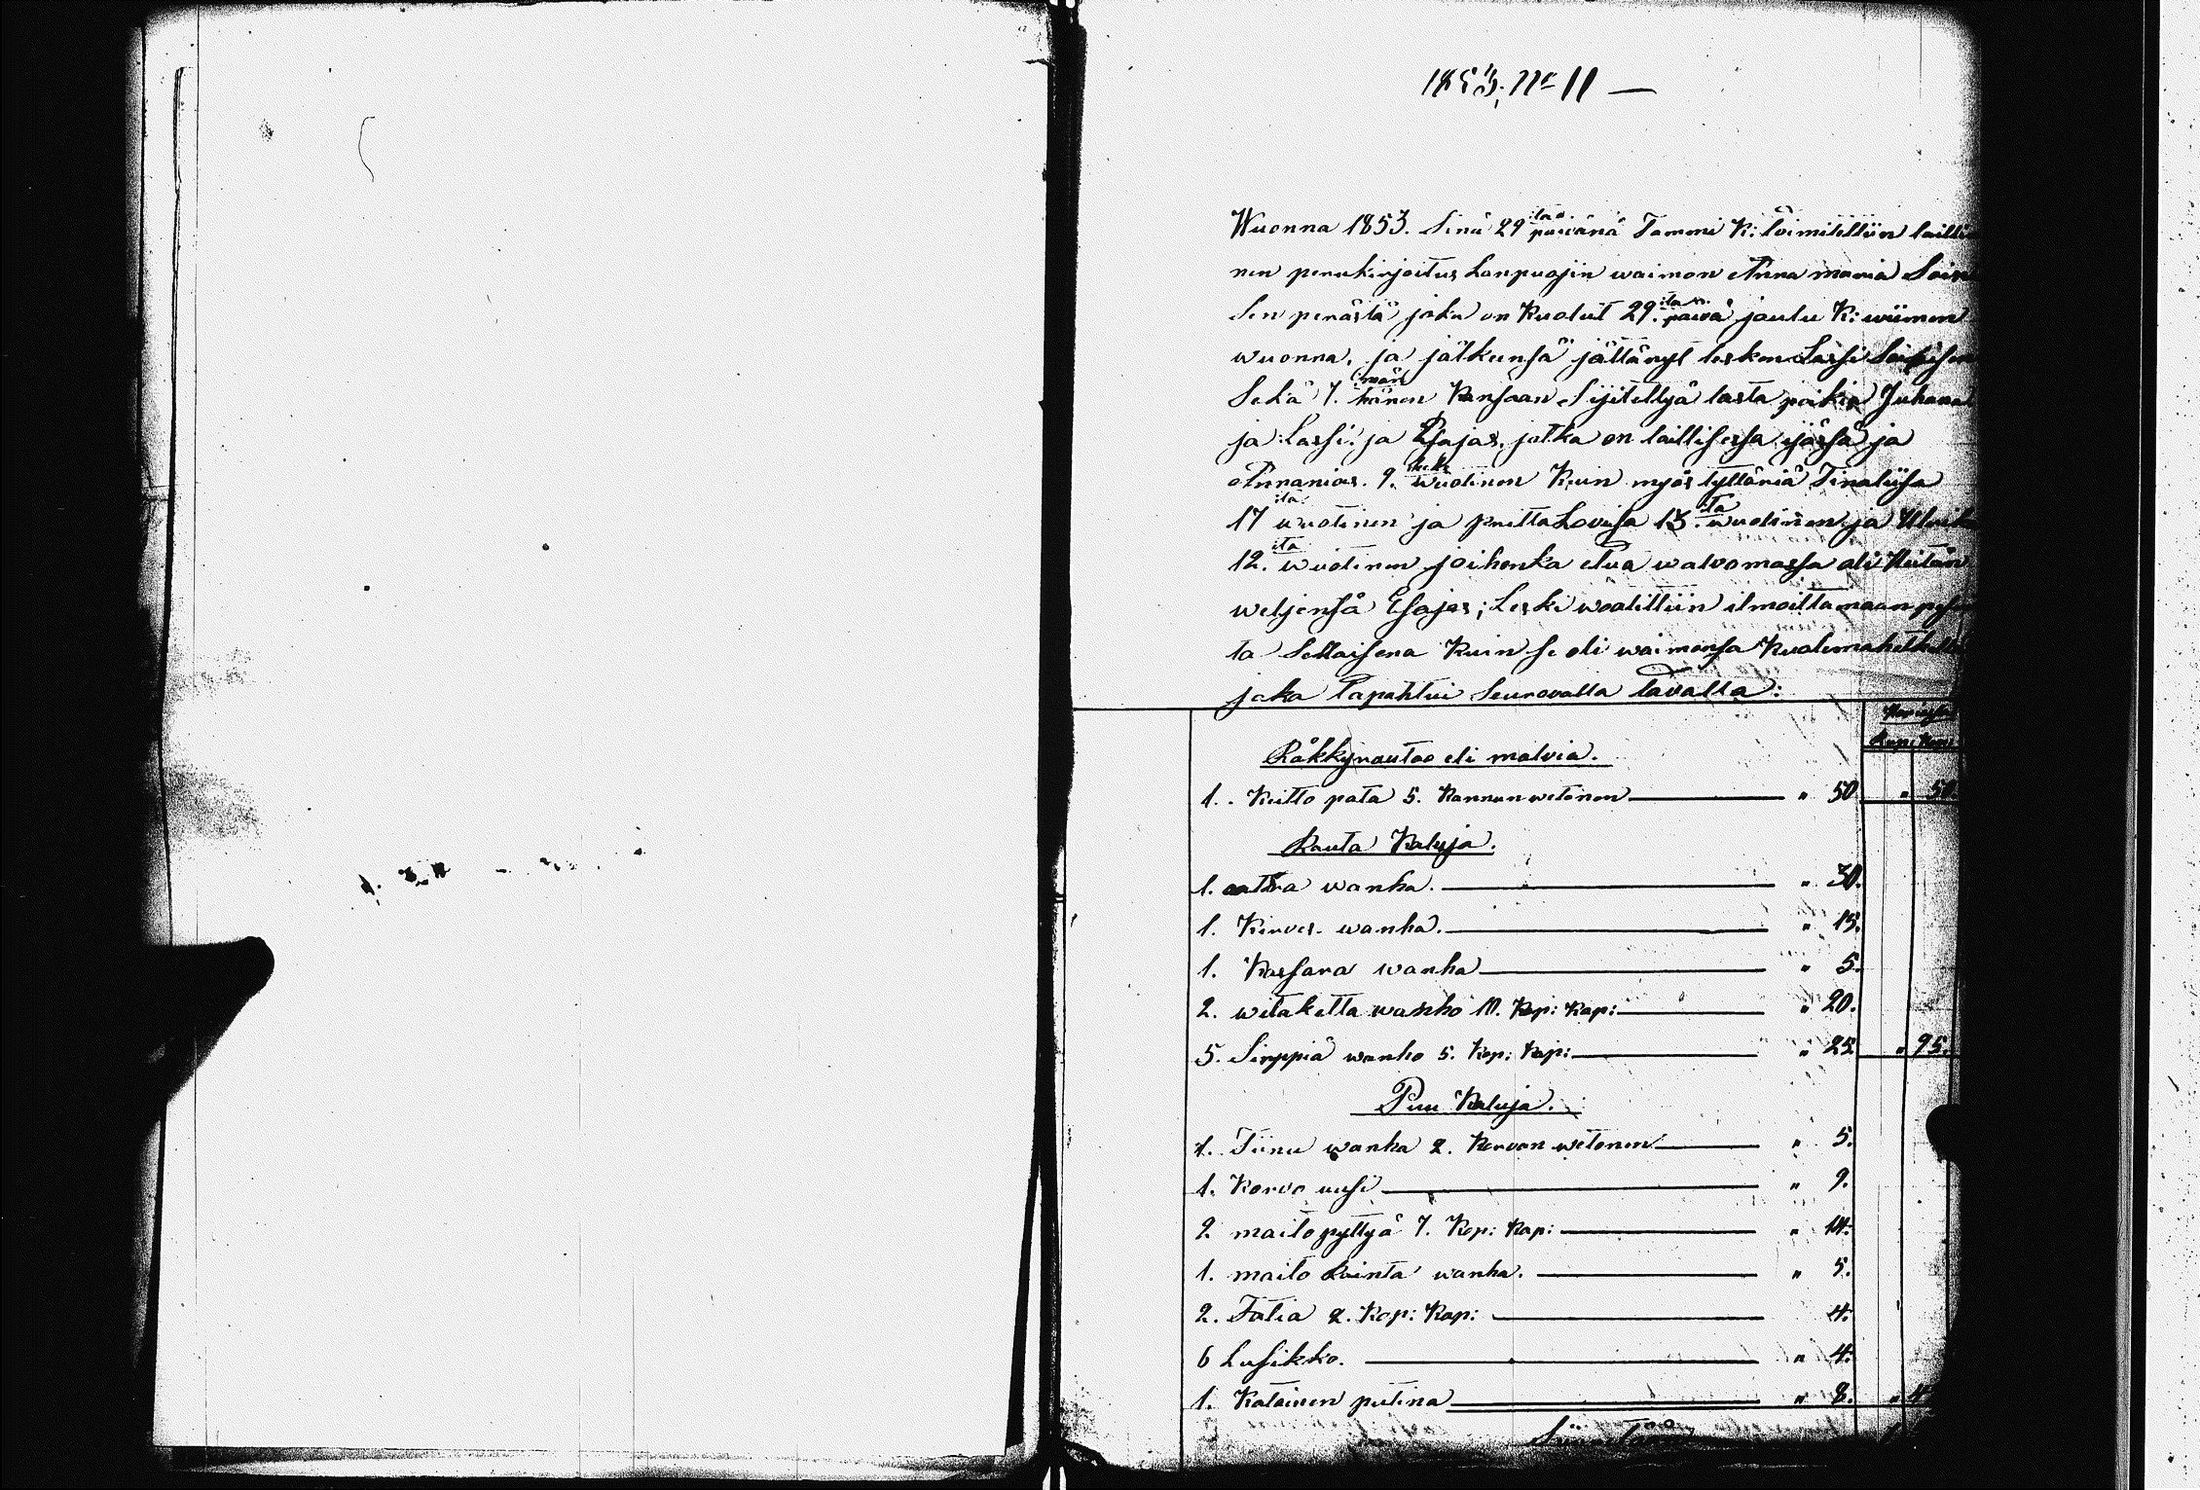 1853, No 11 —
Wuonna 1853. Sinä 29 :tä päivänä Tammi K: toimitettiin lailli
nen perukirjoitus Lanpuojin waimon Anna maria Soini
sen perästä joka on kuolut 29. :tä päivä joulu K: wiimen
wuonna, ja jälkeensä jättänyt lesken Lassi Soinisen
Sekä 7. hänen kansaan Sijitettyä lasta poikia Juhana
ja Lassi: ja Esajas, jotka on laillisessa ijässä ja
Annanias. 9. wuotinen kuin myös tyttäriä Tinaliisa
17 :ta wuotinen ja prittaLovisa 13. :ta wuotinen ja Ulrika
12. :ta wuotinen joihenka etua walvomassa oli Heitän
weljensä Esajas; Leski woatittiin ilmoittamaan pesän
ta Sellaisena Kuin se oli waimonsa Kuolemahetkellä
joka Tapahtui Seurovalla tavalla:
Rup: Kop:
Råkkyrautoo eli malvia.
1. Keitto pata 5. Kannunwetonen — " 50 " 50
Rauta Kaluja.
1. aatra wanha. — " 30.
1. Kirves. wanha. — " 15.
1. Kassara wanha — " 5.
2. witaketta wanho 10. Kop: Kap: — " 20.
5. Sirppiä wanho 5. Kop: Kap: — " 25 " 95.
Puu Kaluja.
1. Tiinu wanha 2. Korvon wetonen — " 5.
1. Korvo uusi — " 9.
2. maitopyttyä 7. Kop: Kap: — " 14.
1. maito Rainta wanha. — " 5.
2. Fatia 2. Kop: Kap: — 4.
6 Lusikko. — " 4.
1. Katainen putina — " 8. " 4
Siirretään